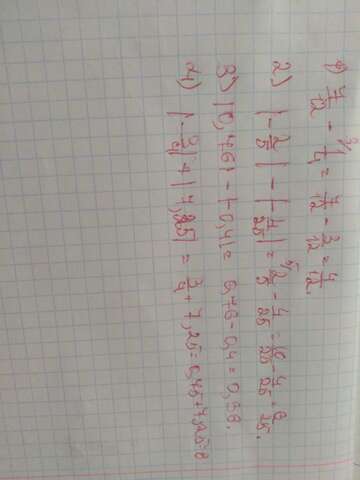 1) 7/12 - 1/4 = 7/12 - 3/12 = 4/12.
2) |-2/5| - |-4/25| = 2/5 - 4/25 = 10/25 - 4/25 = 6/25.
3) |0,76| - |-0,4| = 0,76 - 0,4 = 0,36.
4) |-3/4| + |7,25| = 3/4 + 7,25 = 0,75 + 7,25 = 8